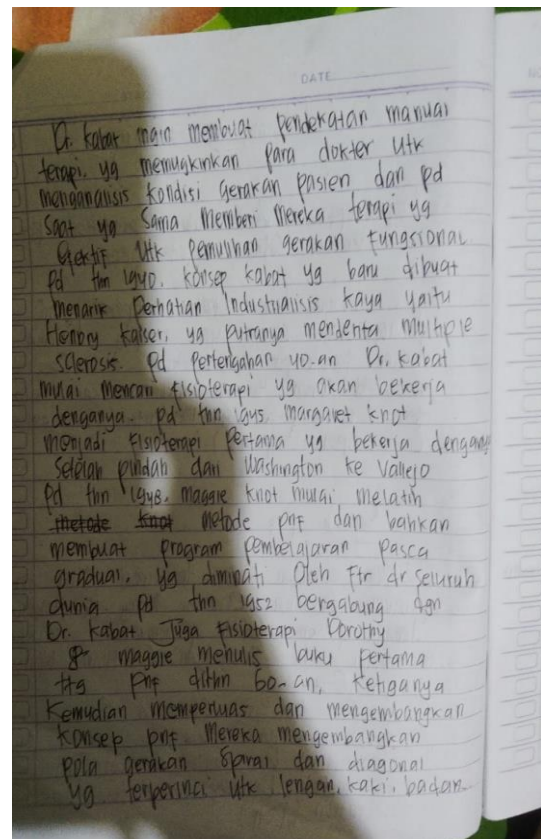 DATE
Dr. kabat ingin membuat pendekatan manual
terapi, yg memugkinkan para dokter utk
menganalisis kondisi gerakan pasien dan pd
saat yg sama memberi mereka terapi yg
efektif utk pemulihan gerakan fungsional
pd thn 1940. konsep kabat yg baru dibuat
menarik perhatian industrialisis kaya yaitu
Henry kaiser, yg putranya menderita multiple
sclerosis. pd pertengahan 40-an Dr. kabat
mulai mencari fisioterapi yg akan bekerja
denganya. pd thn 1945, margaret knot
menjadi fisioterapi pertama yg bekerja dengany
Setelah pindah dari washington ke vallejo
pd thn 1948. maggie knot mulai melatih
metode knot metode pnf dan bahkan
membuat program pembelajaran pasca
gradual, yg diminati oleh ftr dr seluruh
dunia pd thn 1952 bergabung dgn
Dr. kabat juga fisioterapi Dorothy
& maggie menulis buku pertama
ttg pnf dithn 60-an, ketiganya
kemudian memperluas dan mengembangkan
konsep pnf mereka mengembangkan
pola gerakan spiral dan diagonal
yg terperinci utk lengan, kaki, badan.